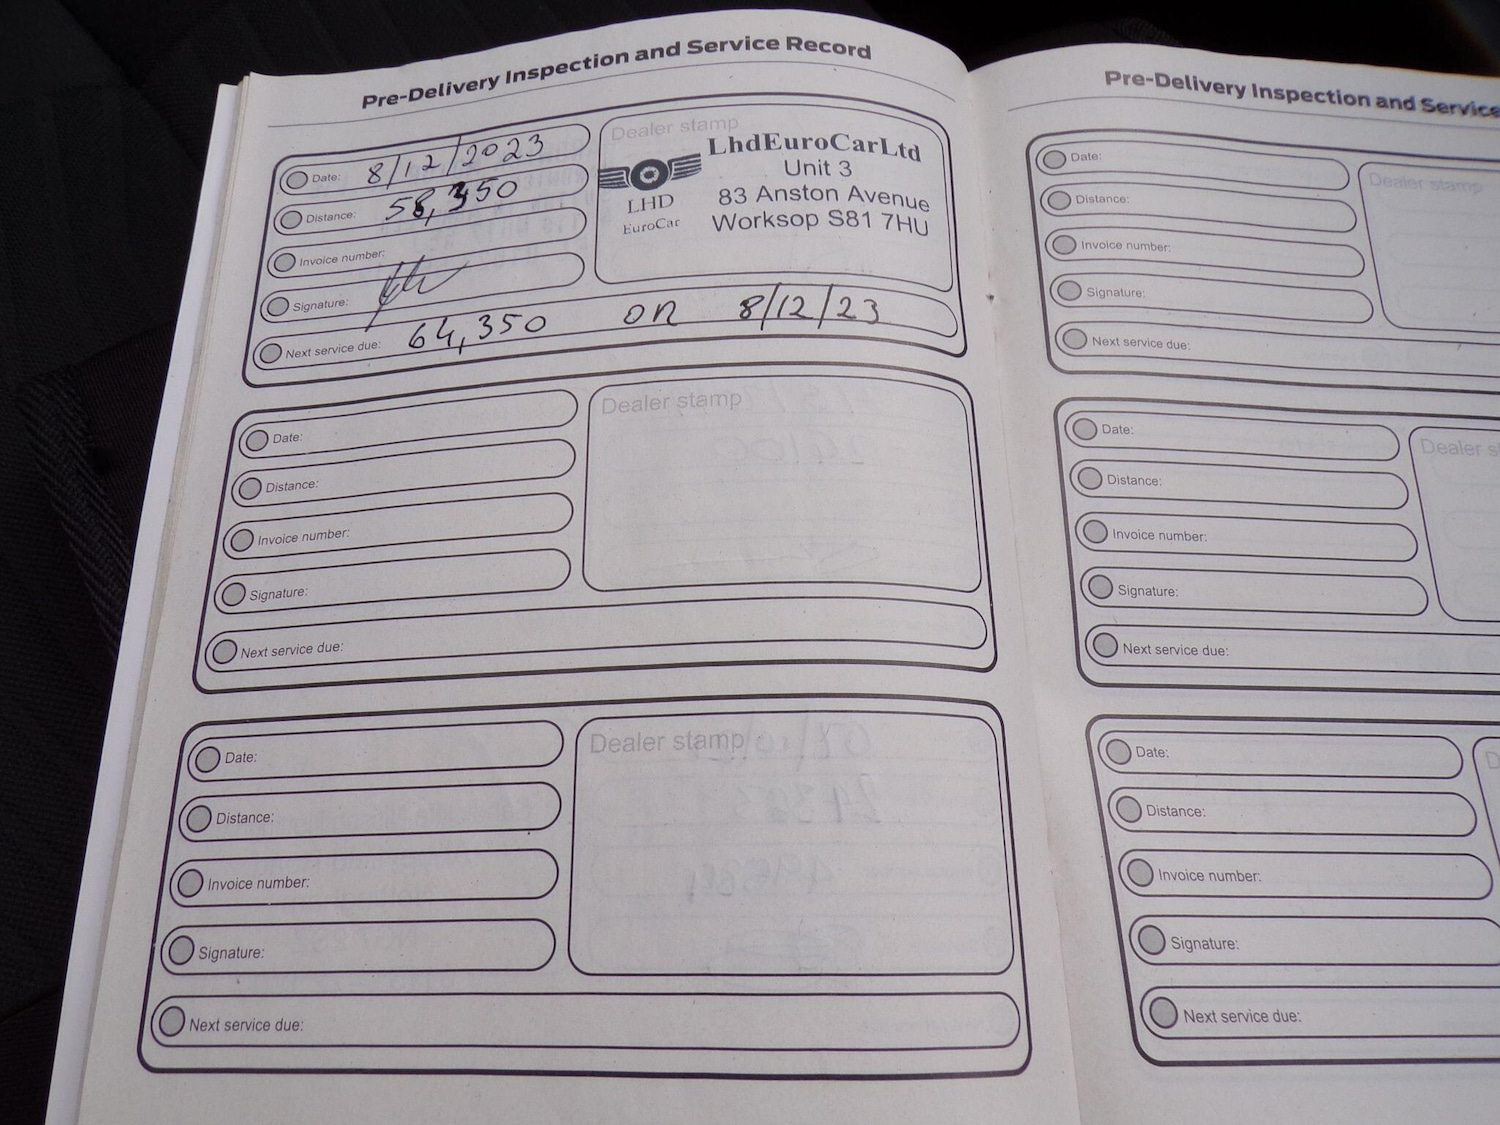 Pre-Delivery Inspection and Service Record
Date: 8/12/2023
Distance: 58,350
Invoice number:
Signature:
Next service due: 64,350 on 8/12/23
Dealer stamp
LhdEuroCarLtd
Unit 3
83 Anston Avenue
Worksop S81 7HU
LHD
EuroCar
Date:
Distance:
Invoice number:
Signature:
Next service due:
Dealer stamp
Date:
Distance:
Invoice number:
Signature:
Next service due:
Dealer stamp
Pre-Delivery Inspection and Service
Date:
Distance:
Invoice number:
Signature:
Next service due:
Dealer stamp
Date:
Distance:
Invoice number:
Signature:
Next service due:
Dealer s
Date:
Distance:
Invoice number:
Signature:
Next service due:
D